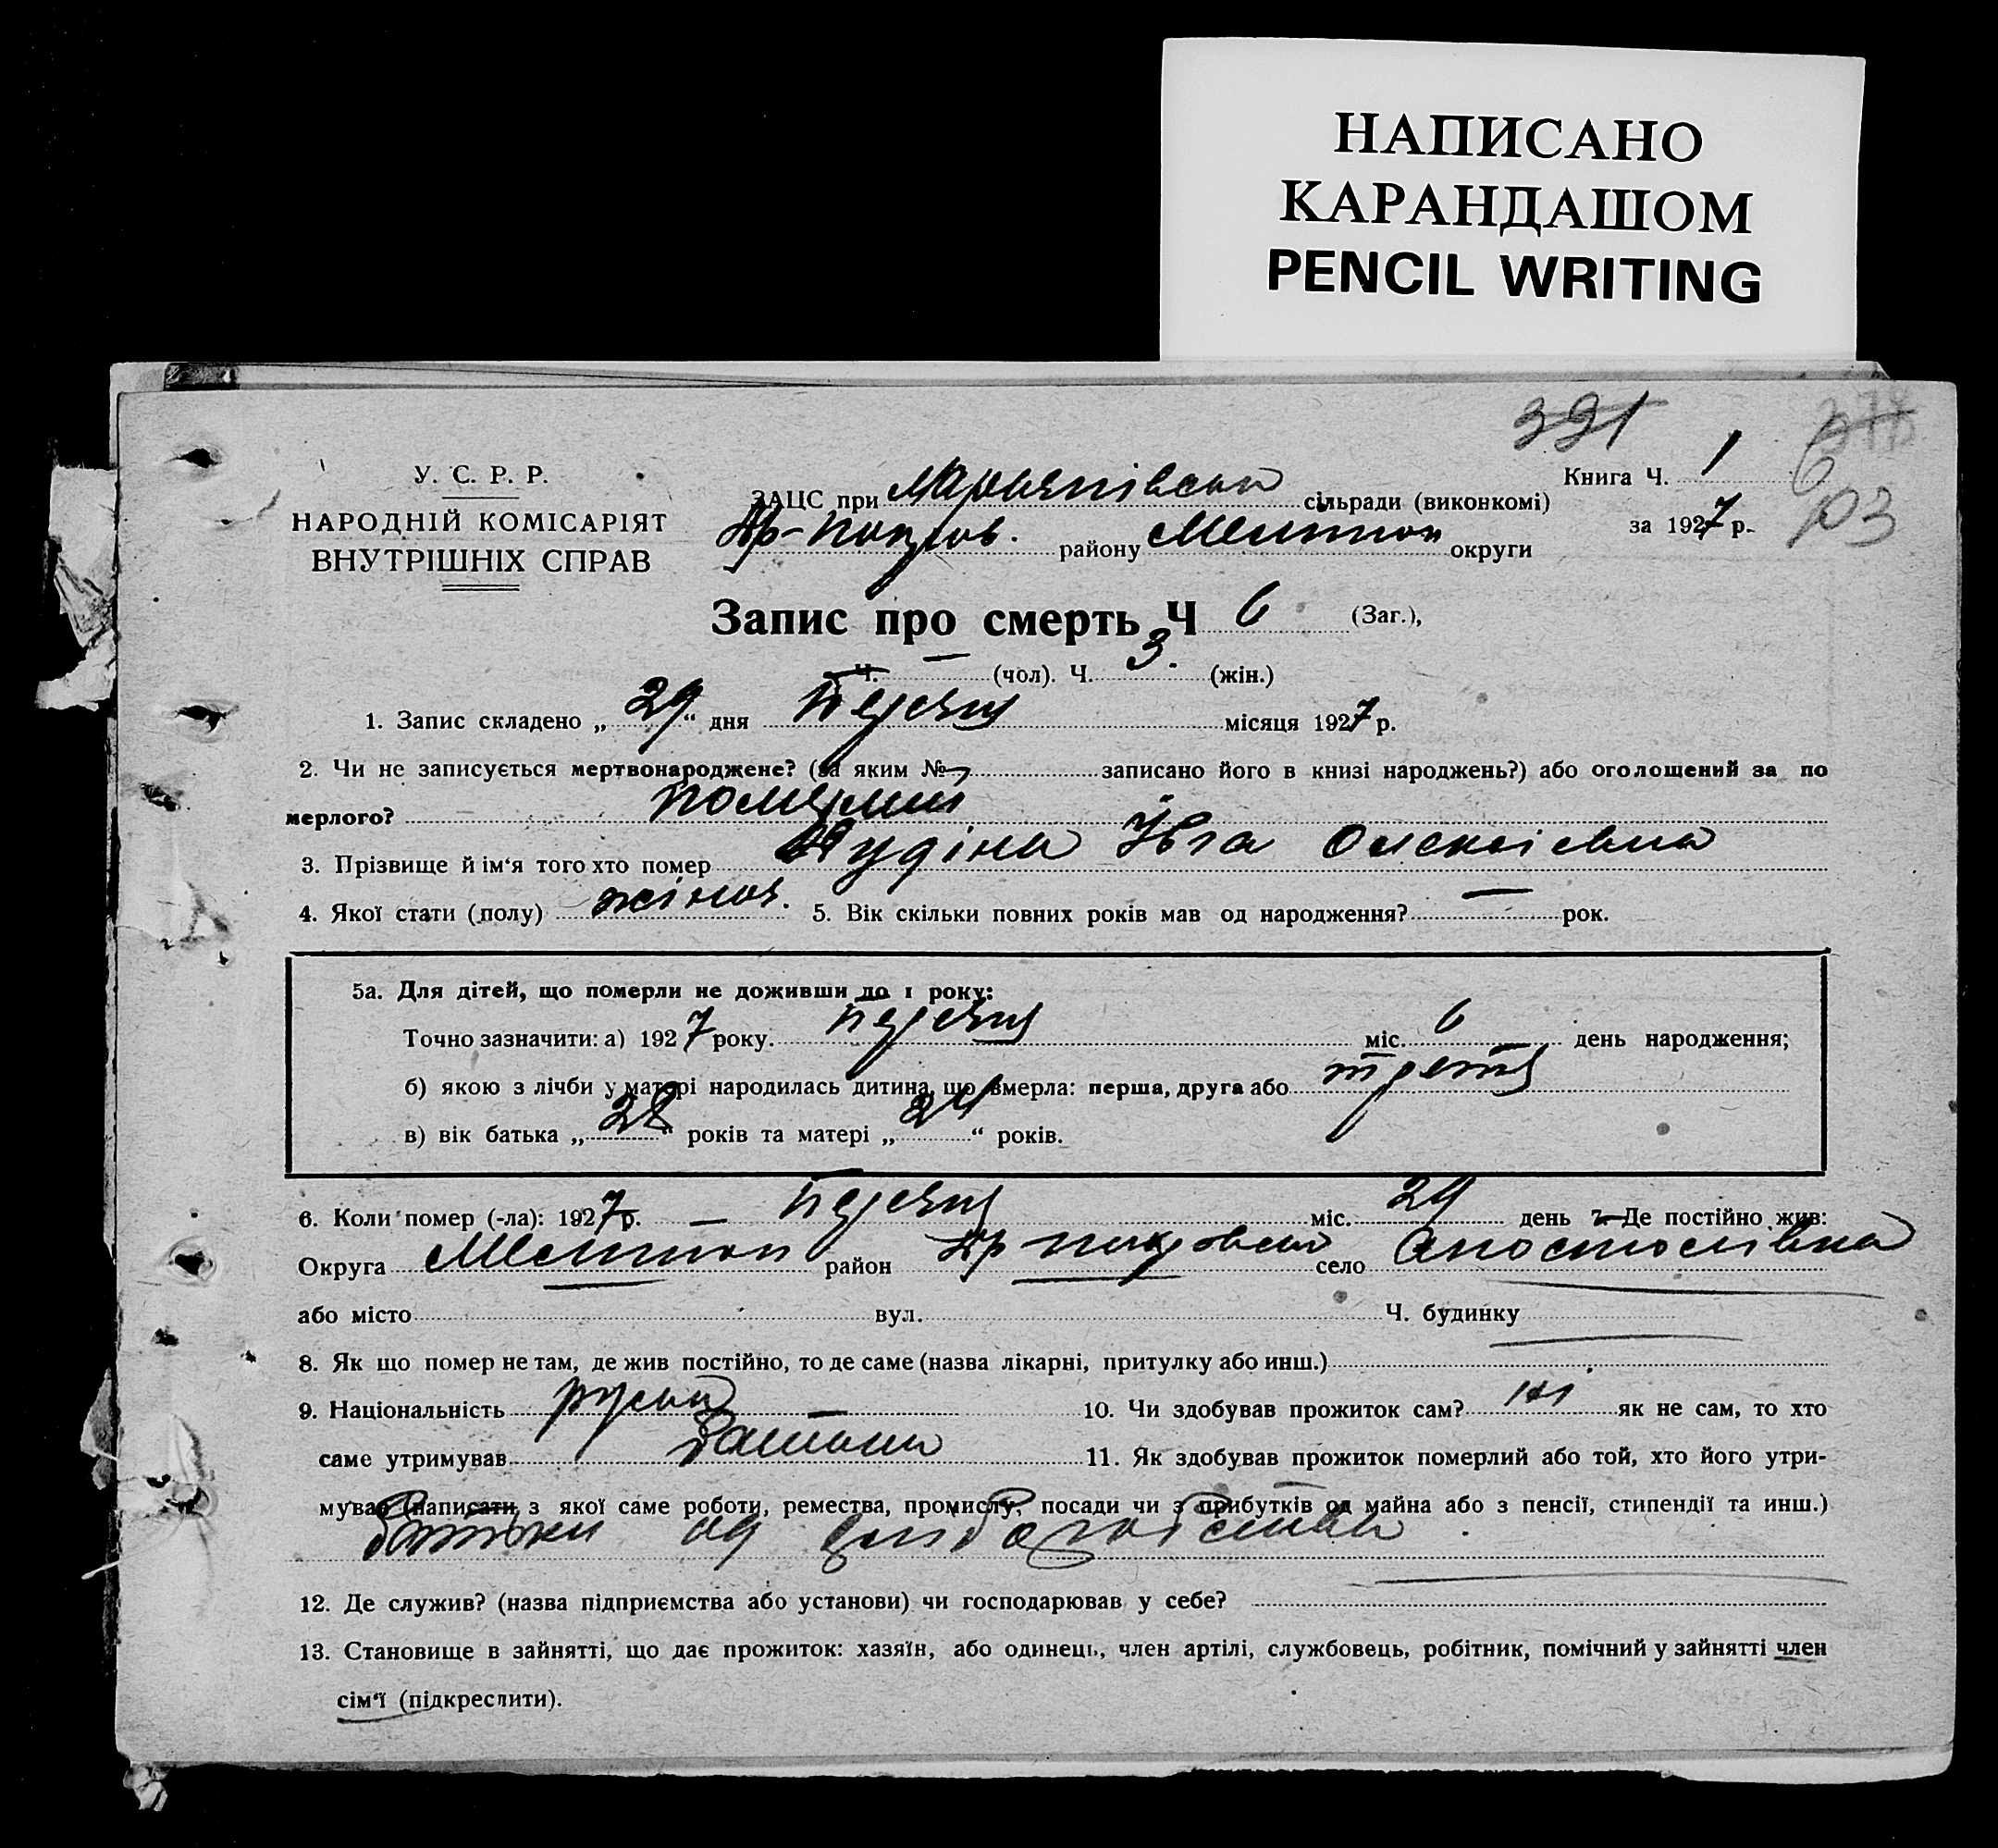 НАПИСАНО
КАРАНДАШОМ
PENCIL WRITING
331
Книга Ч. 1
за 1927 р.
103
У. С. Р. Р.
НАРОДНІЙ КОМІСАРІЯТ
ВНУТРІШНІХ СПРАВ
ЗАЦС при сільради (виконкомі)
району Мелитоп округи
Запис про смерть Ч 6 (Заг.),
Ч. — (чол). Ч. 3. (жін.)
1. Запис складено „29“ дня місяця 1927 р.
2. Чи не записується мертвонароджене? (за яким № записано його в книзі народжень?) або оголощений за по
мерлого?
3. Прізвище й ім‘я того хто помер Ївга Олексіевна
4. Якої стати (полу) жіноч. 5. Вік скільки повних років мав од народження? — рок.
5а. Для дітей, що померли не доживши до 1 року:
Точно зазначити: а) 1927 року. міс. 6 день народження;
б) якою з лічби у матері народилась дитина, що вмерла: перша, друга або третя
в) вік батька „28“ років та матері „24“ років.
6. Коли помер (-ла): 1927 р. — міс. 29 день 7. Де постійно жив:
Округа Мелитоп район село Апостолівка
або місто вул. Ч. будинку
8. Як що помер не там, де жив постійно, то де саме (назва лікарні, притулку або инш.)
9. Національність руська 10. Чи здобував прожиток сам? ні як не сам, то хто
саме утримував батьки 11. Як здобував прожиток померлий або той, хто його утри-
мував (написати з якої саме роботи, ремества, промислу, посади чи з прибутків од майна або з пенсії, стипендії та инш.)
батьки од
12. Де служив? (назва підприємства або установи) чи господарював у себе?
13. Становище в зайнятті, що дає прожиток: хазяїн, або одинець, член артілі, службовець, робітник, помічний у зайнятті член
сім‘ї (підкреслити).